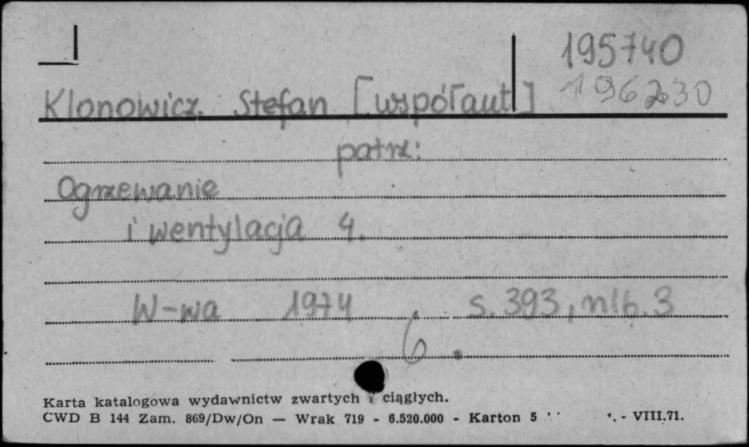 195740
Klonowicz Stefan [współaut] 196230
patrz:
Ogrzewanie
i wentylacja 4.
W-wa 1974 s. 393, nlb. 3
6.
Karta katalogowa wydawnictw zwartych i ciągłych.
CWD B 144 Zam. 869/Dw/On — Wrak 719 - 6.520.000 - Karton 5 - VIII.71.